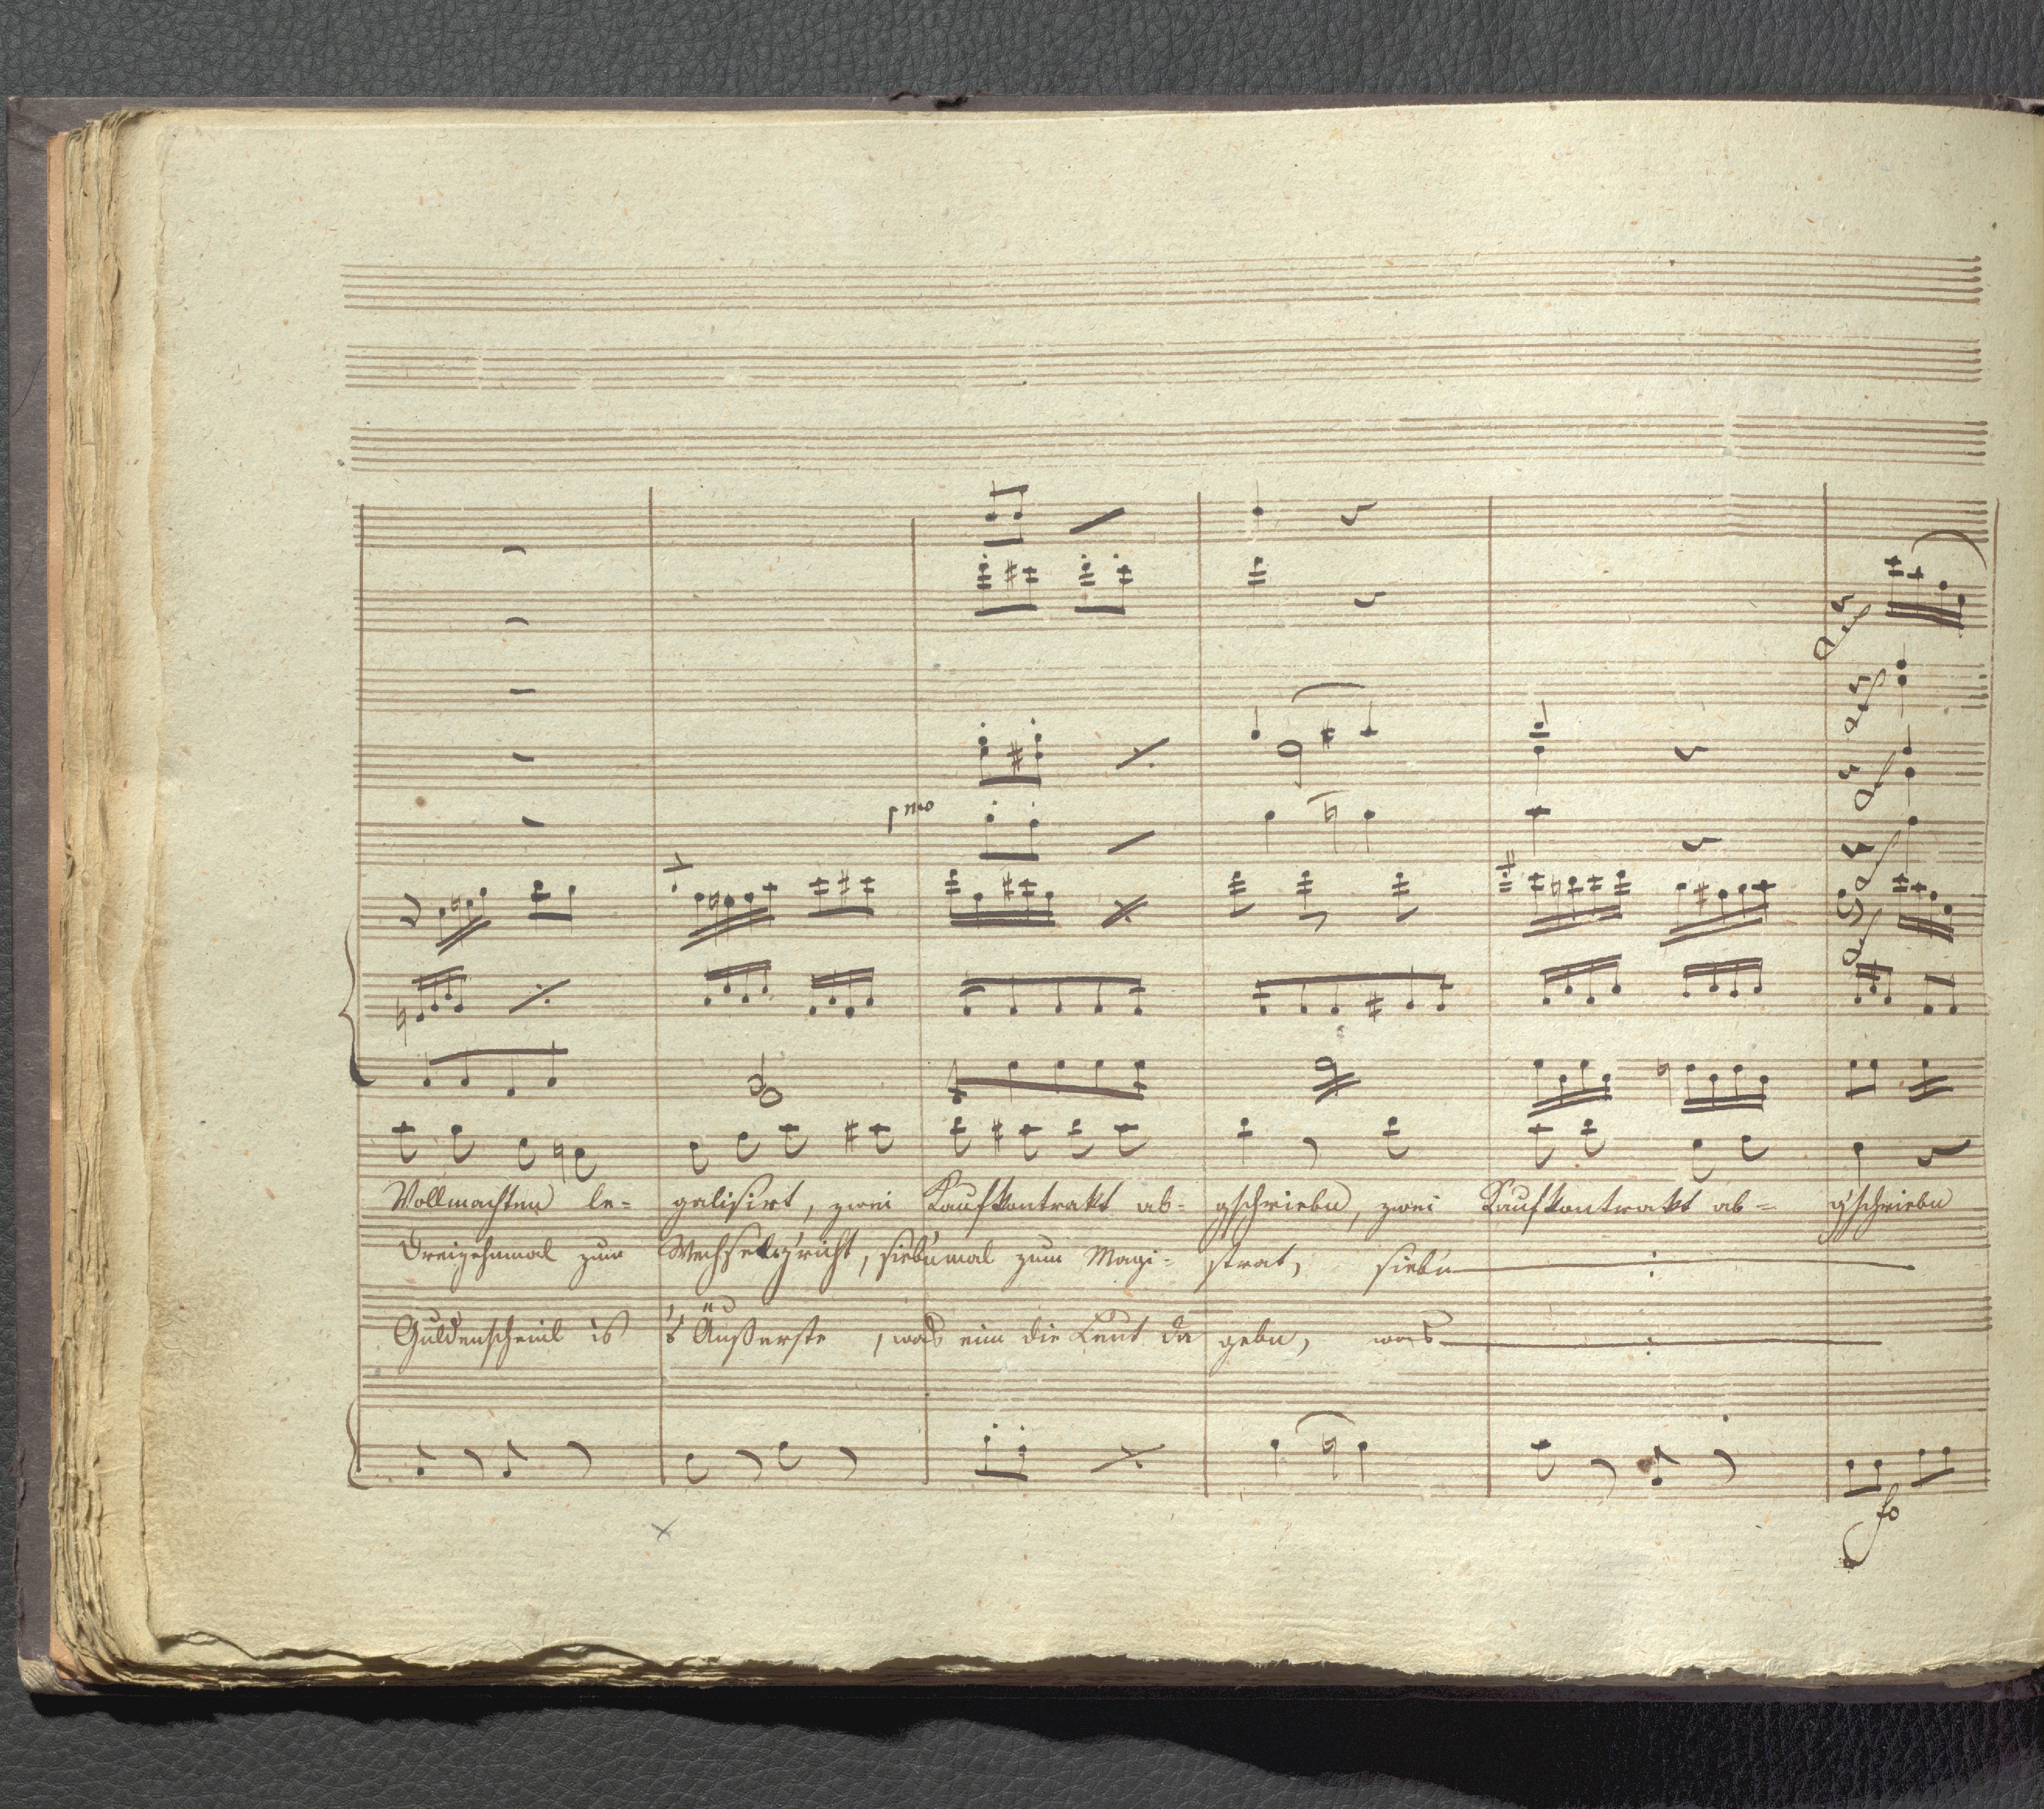 pmo
Vollmachten le- galisirt, zwei Kaufkontrakt ab- gschriebn, zwei Kaufkontrakt ab- gschriebn
Dreizehnmal zum Wechselg'richt, siebnmal zum Magi- strat, siebn
Guldenscheinl is 's Äußerste, was eim die Leut da gebn, was
fo